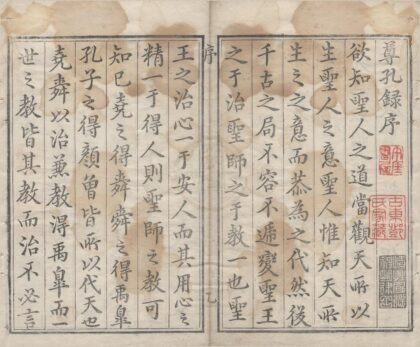 尊孔録序
欲知聖人之道當觀天所以
生聖人之意聖人惟知天所
生之之意而恭為之代然後
千古之局不容不遞變聖王
之于治聖師之于教一也聖
序
王之治心一于安人而其用心之
精一于得人則聖師之教可
知已堯之得舜舜之得禹皐
孔子之得顏曾皆所以代天也
堯舜以治兼教得禹皐而一
世之教皆其教而治不必言